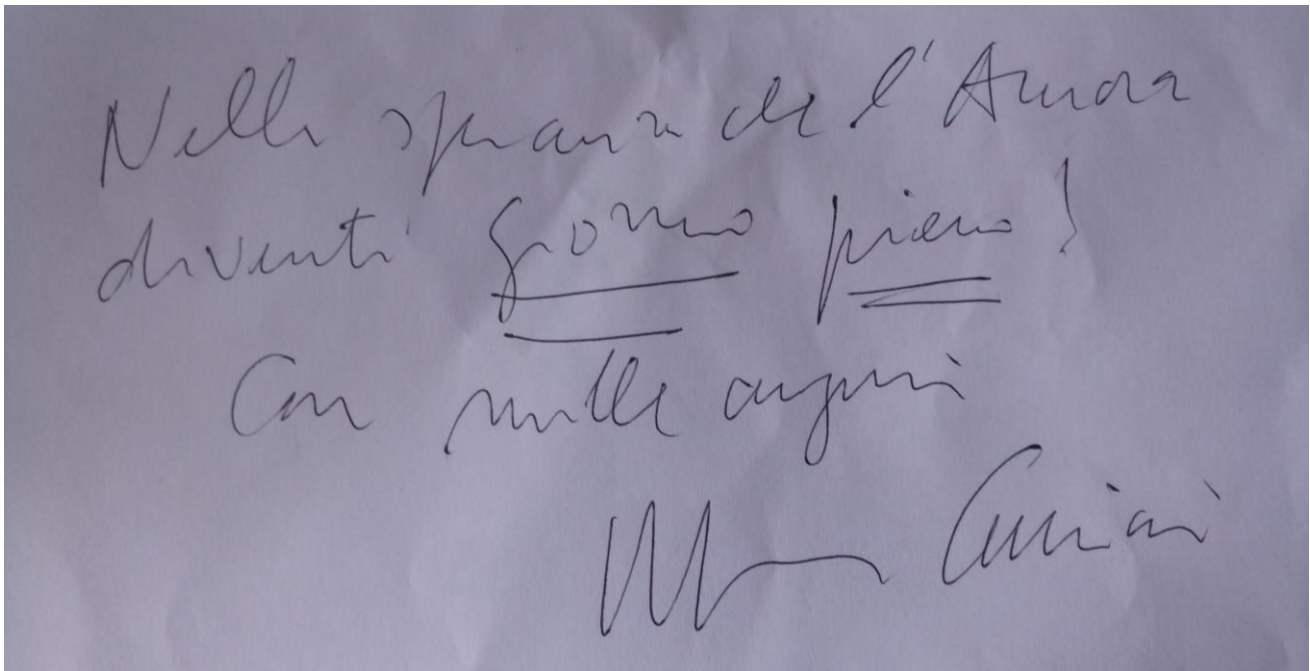 Nella speranza che l'Aurora
diventi giorno pieno!
Con mille auguri